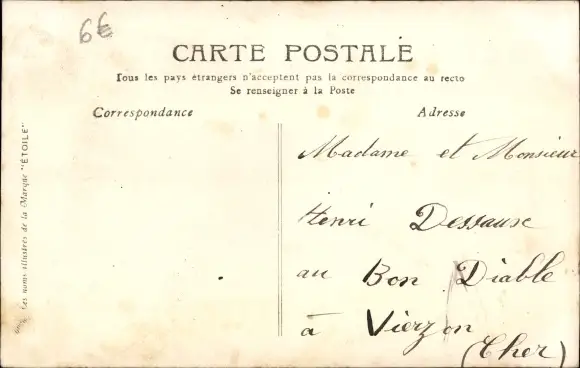 6€
CARTE POSTALE
Tous les pays étrangers n'acceptent pas la correspondance au recto
Se renseigner à la Poste
Correspondance
Adresse
Les noms illustrés de la Marque "ÉTOILE"
Madame et Monsieur
Henri Dessause
au Bon Diable
à Vierzon
(Cher)